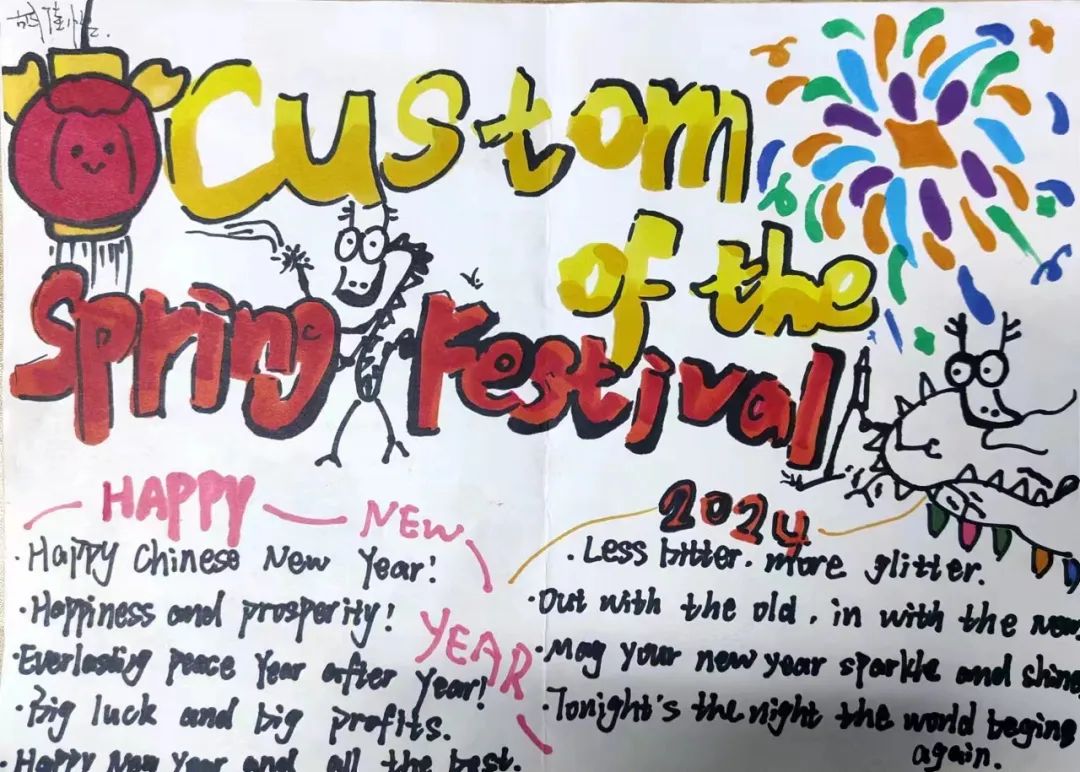 Custom
of the
Spring Festival
HAPPY
NEW
YEAR
· Happy Chinese New Year!
· Happiness and prosperity!
· Everlasting peace year after year!
· Big luck and big profits.
· Happy New Year and all the best.
2024
· Less bitter. more glitter.
· Out with the old, in with the new
· May your new year sparkle and shine
· Tonight's the night the world begins
again.